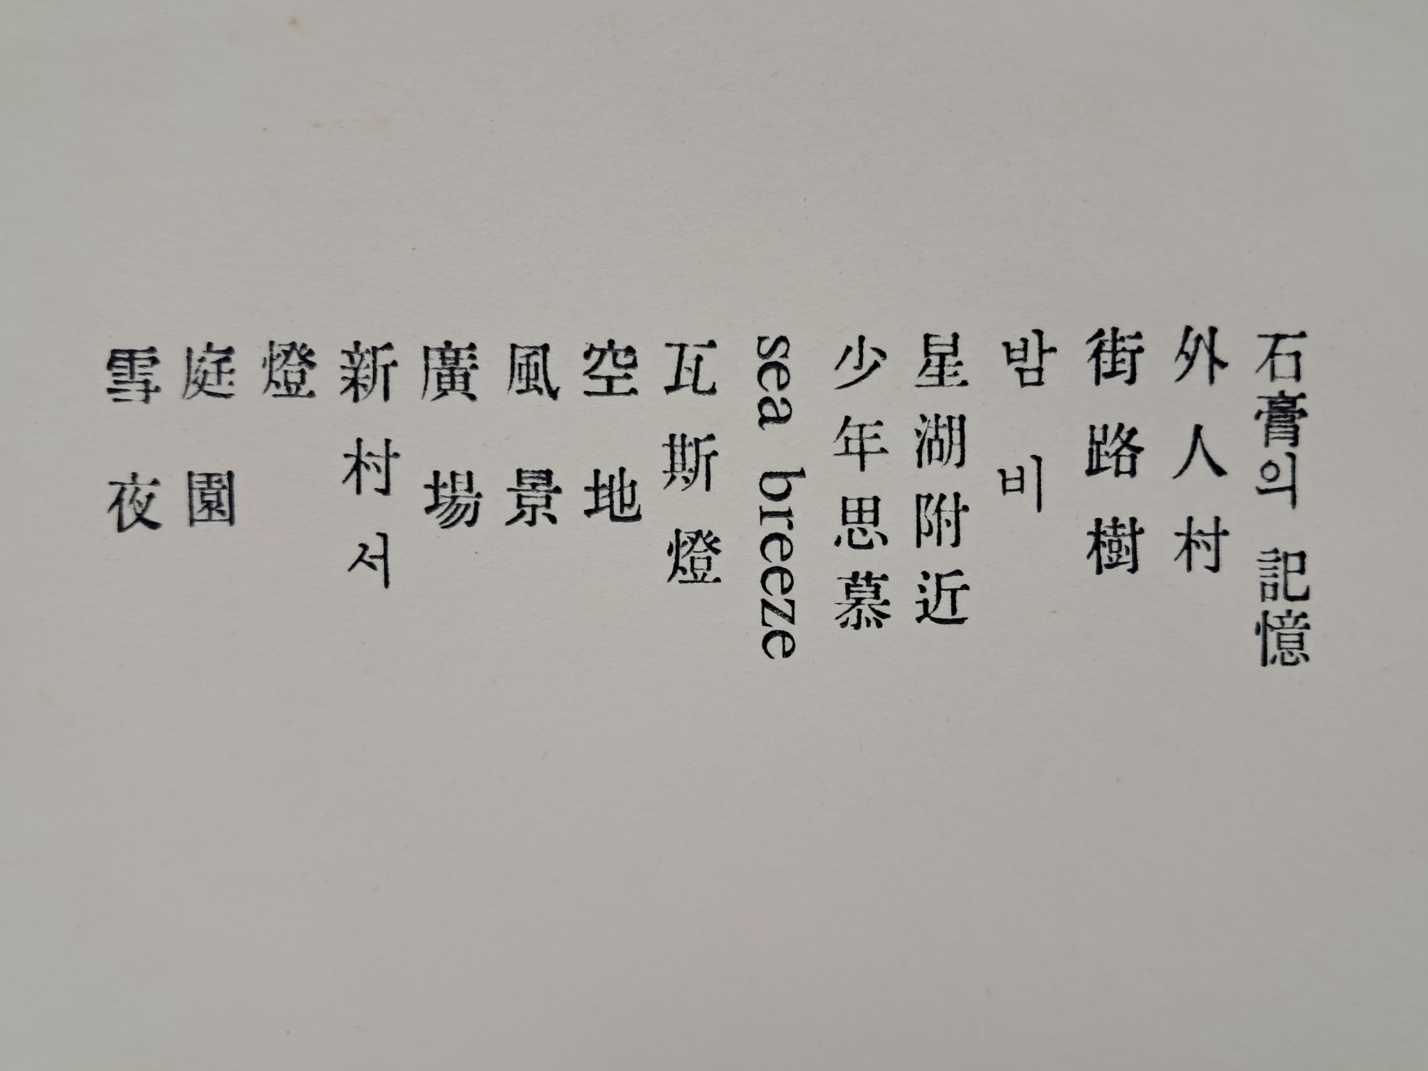 石膏의 記憶
外人村
街路樹
밤비
星湖附近
少年思慕
sea breeze
瓦斯燈
空地
風景
廣場
新村서
燈
庭園
雪夜